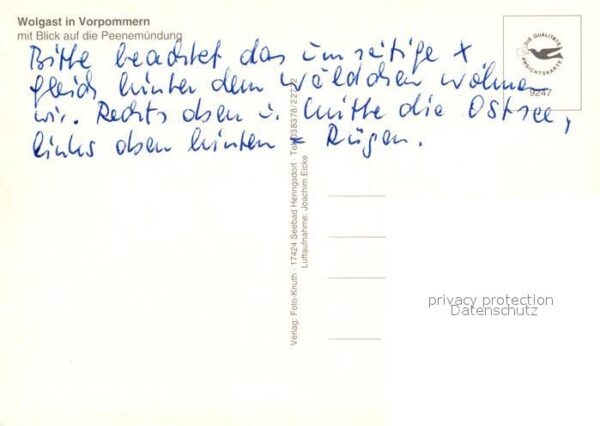 Wolgast in Vorpommern
mit Blick auf die Peenemündung
Bitte beachtet das umseitige x
gleich hinter dem Wäldchen wohnen
wir. Rechts oben u. Mitte die Ostsee,
links oben hinten = Rügen.
DIE QUALITÄTS
ANSICHTSKARTE
9247
Verlag: Foto-Knuth · 17424 Seebad Heringsdorf · Tel. 038378/22272
Luftaufnahme: Joachim Eicke
privacy protection
Datenschutz